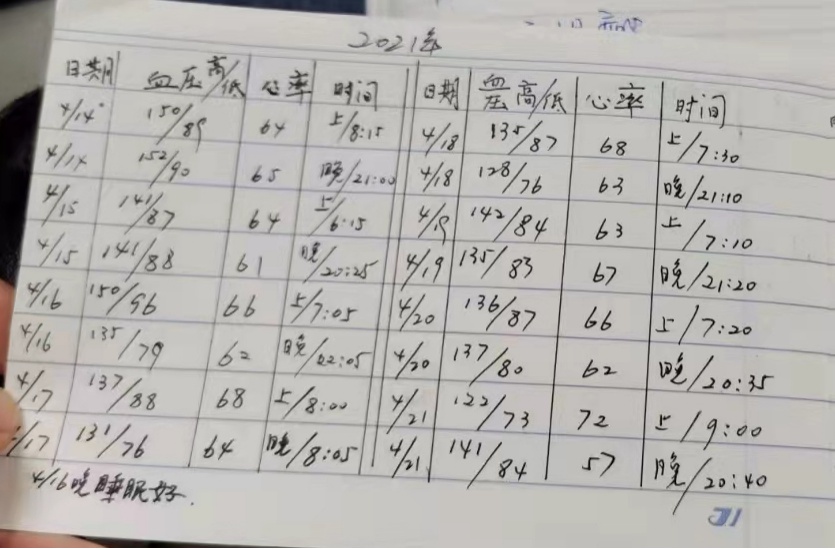 2021年
日期 血压高/低 心率 时间 日期 血压高/低 心率 时间
4/14 150/89 64 上/8:15 4/18 135/87 68 上/7:30
4/14 152/90 65 晚/21:00 4/18 128/76 63 晚/21:10
4/15 141/87 64 上/6:15 4/19 142/84 63 上/7:10
4/15 141/88 61 晚/20:25 4/19 135/83 67 晚/21:20
4/16 150/96 66 上/7:05 4/20 136/87 66 上/7:20
4/16 135/79 62 晚/22:05 4/20 137/80 62 晚/20:35
4/17 137/88 68 上/8:00 4/21 122/73 72 上/9:00
/17 131/76 64 晚/8:05 4/21 141/84 57 晚/20:40
4/16晚睡眠好.